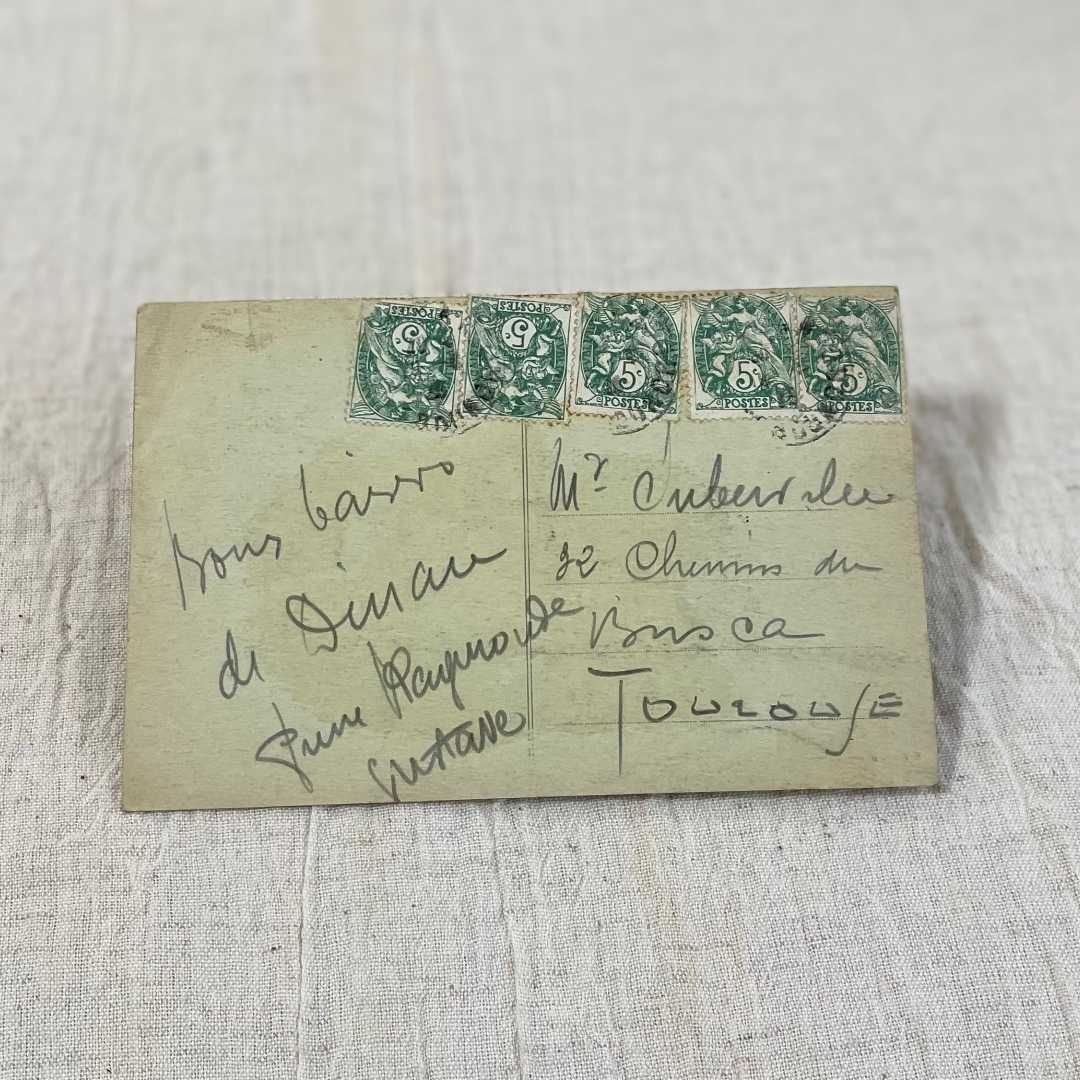 5
POSTES
5
POSTES
5c
POSTES
5c
POSTES
5c
POSTES
Bons baisers
de Dinan
Raymonde
Gustave
Mr
32 Chemin du
Busca
TOULOUSE